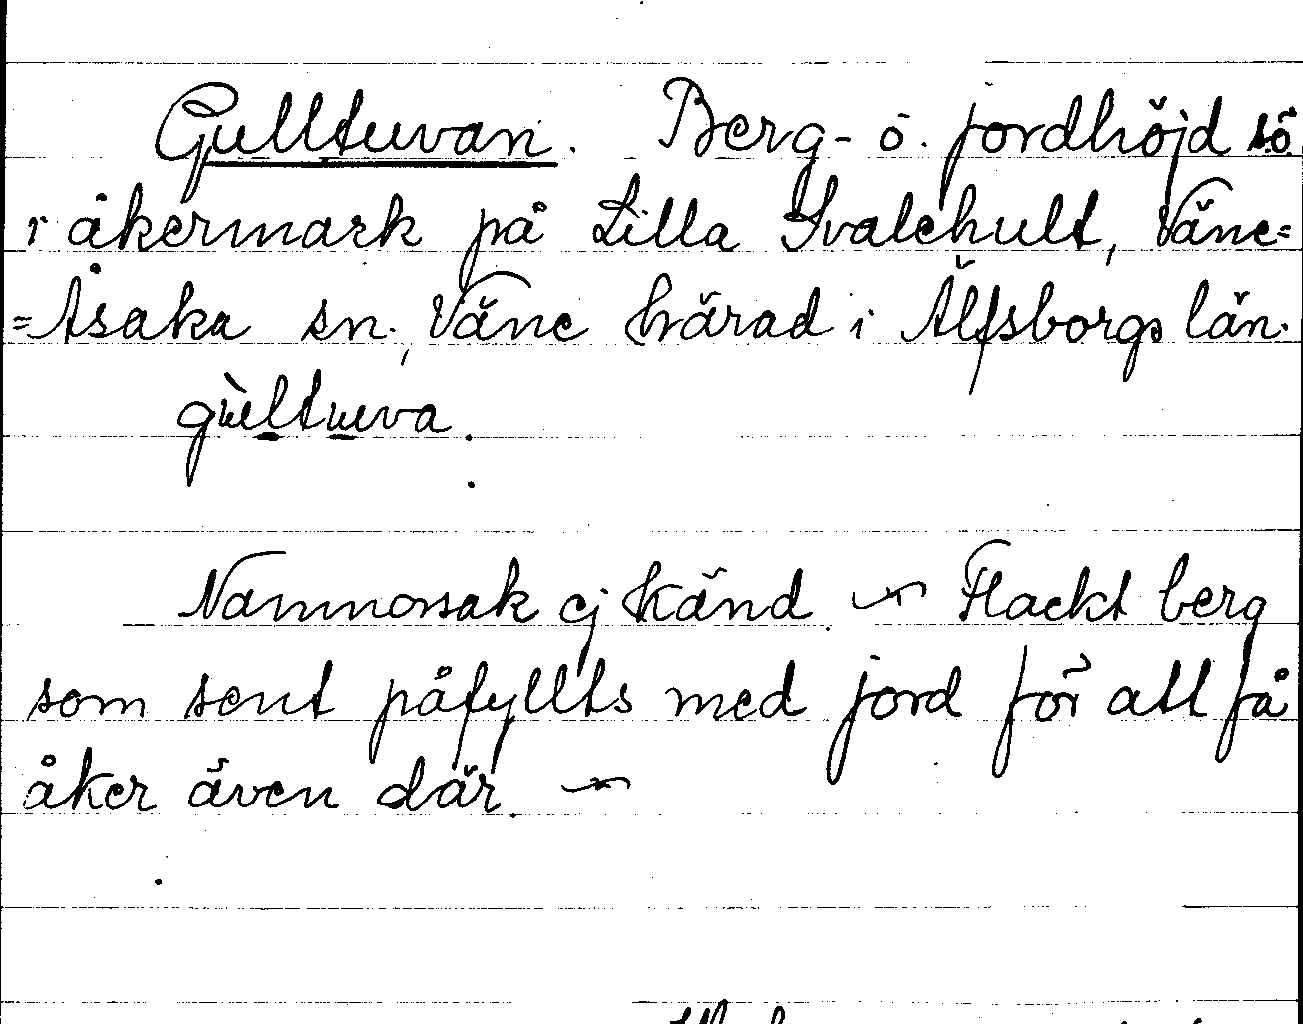 Gulltuvan. Berg- o. jordhöjd sö
i åkermark på Lilla Svalehult, Väne=
=Åsaka sn., Väne härad i Älfsborgs län.
gùltuva.
Namnorsak ej känd. Flackt berg
som sent påfyllts med jord för att få
åker även där.